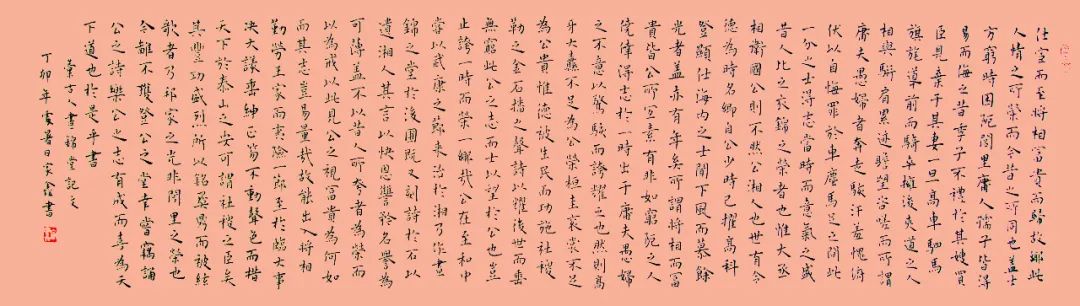 仕宦而至將相富貴而歸故鄉此
人情之所榮而今昔之所同也蓋士
方窮時困阨閭里庸人孺子皆得
易而侮之昔季子不禮於其嫂買
臣見棄于其妻一旦高車駟馬
旗旄導前而騎卒擁後夾道之人
相與駢肩累迹瞻望咨嗟而所謂
庸夫愚婦者奔走駭汗羞愧俯
伏以自悔罪於車塵馬足之間此
一介之士得志當時而意氣之盛
昔人比之衣錦之榮者也惟大丞
相衛國公則不然公湘人也世有令
德為時名卿自公少時已擢高科
登顯仕海內之士聞下風而慕餘
光者蓋亦有年矣所謂將相而富
貴皆公所宜素有非如窮阨之人
僥倖得志於一時出于庸夫愚婦
之不意以驚駭而誇耀之也然則高
牙大纛不足為公榮桓圭袞裳不足
為公貴惟德被生民而功施社稷
勒之金石播之聲詩以耀後世而垂
無窮此公之志而士以望於公也豈
止誇一時而榮一鄉哉公在至和中
嘗以武康之節來治於湘乃作晝
錦之堂於後圃既又刻詩於石以
遺湘人其言以快恩讐矜名譽為
可薄蓋不以昔人所夸者為榮而
以為戒以此見公之視富貴為何如
而其志豈易量哉故能出入將相
勤勞王家而夷險一節至於臨大事
決大議垂紳正笏不動聲色而措
天下於泰山之安可謂社稷之臣矣
其豐功盛烈所以銘彝鼎而被絃
歌者乃邦家之光非閭里之榮也
余雖不獲登公之堂幸嘗竊誦
公之詩樂公之志有成而喜為天
下道也於是乎書
古人晝錦堂記文
丁卯年暑日家書